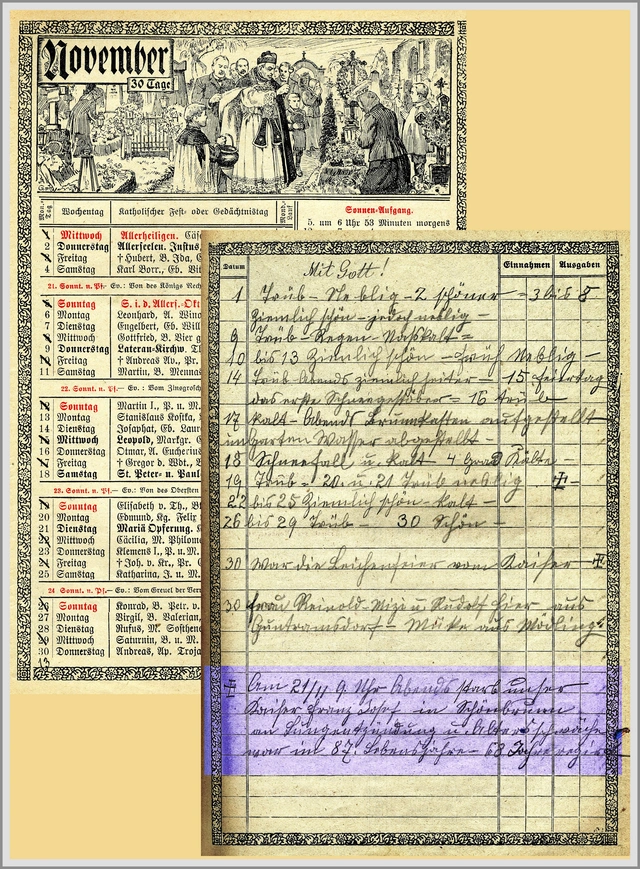 November
30 Tage
Wochentag Katholischer Fest- oder Gedächtnistag
Sonnen-Aufgang.
5. um 6 Uhr 53 Minuten morgens
Mittwoch Allerheiligen.
2 Donnerstag Allerseelen. Justus,
Freitag † Hubert, B. Ida,
4 Samstag Karl Borr.,
21. Sonnt. n. Pf.— Ev.: Von des Königs
Sonntag
6 Montag Leonhard, A.
7 Dienstag Engelbert,
Mittwoch Gottfried, B.
9 Donnerstag Lateran-Kirchw.
Freitag † Andreas Av., Pr.
11 Samstag Martin, B.
22. Sonnt. n. Pf.— Ev.: Vom
Sonntag Martin I., P. u. M.
13 Montag Stanislaus Kostka,
14 Dienstag Josaphat, Eb.
Mittwoch Leopold, Markgr.
16 Donnerstag Otmar, A.
Freitag † Gregor d. Wdt.,
18 Samstag St. Peter- u. Paul
23. Sonnt. n. Pf.— Ev.: Von des Obersten
Sonntag Elisabeth v. Th.,
20 Montag Edmund, Kg. Felix
21 Dienstag Mariä Opferung.
Mittwoch Cäcilia, M.
23 Donnerstag Klemens I., P. u. M.
Freitag † Joh. v. Kr., Pr.
25 Samstag Katharina, J. u. M.
24. Sonnt. n. Pf.— Ev.: Vom Greuel der
Sonntag Konrad, B. Petr. v.
27 Montag Virgil, B. Valerian,
28 Dienstag Rufus, M.
Mittwoch Saturnin, B. u. M.
30 Donnerstag Andreas, Ap.
13
Datum Mit Gott! Einnahmen Ausgaben
1 Trüb - Neblig - 2 schöner - 3 bis 8
Ziemlich schön - jedoch neblig -
9 Trüb - Regen - Nasskalt -
10 bis 13 Ziemlich schön - früh Neblig -
14 Trüb Abends ziemlich heiter - 15 feiertag
das erste Schneegestöber = 16 trüb
17 kalt - Abends Brunnkasten aufgestellt
im garten Wasser abgestellt -
18 Schneefall u. kalt - 4 Grad Kälte -
19 Trüb - 20. u. 21 Trüb neblig
22 bis 25 Ziemlich schön - kalt -
26 bis 29 Trüb - 30 Schön -
30 War die Leichenfeier vom Kaiser
30 frau Reinold - Mizi u. Rudolf hier aus
Guntramsdorf - aus Mödling
Am 21/11 9 Uhr Abends starb unser
Kaiser Franz Josef in Schönbrunn
an Lungentzündung u. Altersschwäche
war im 87. Lebensjahre - 68 Jahre